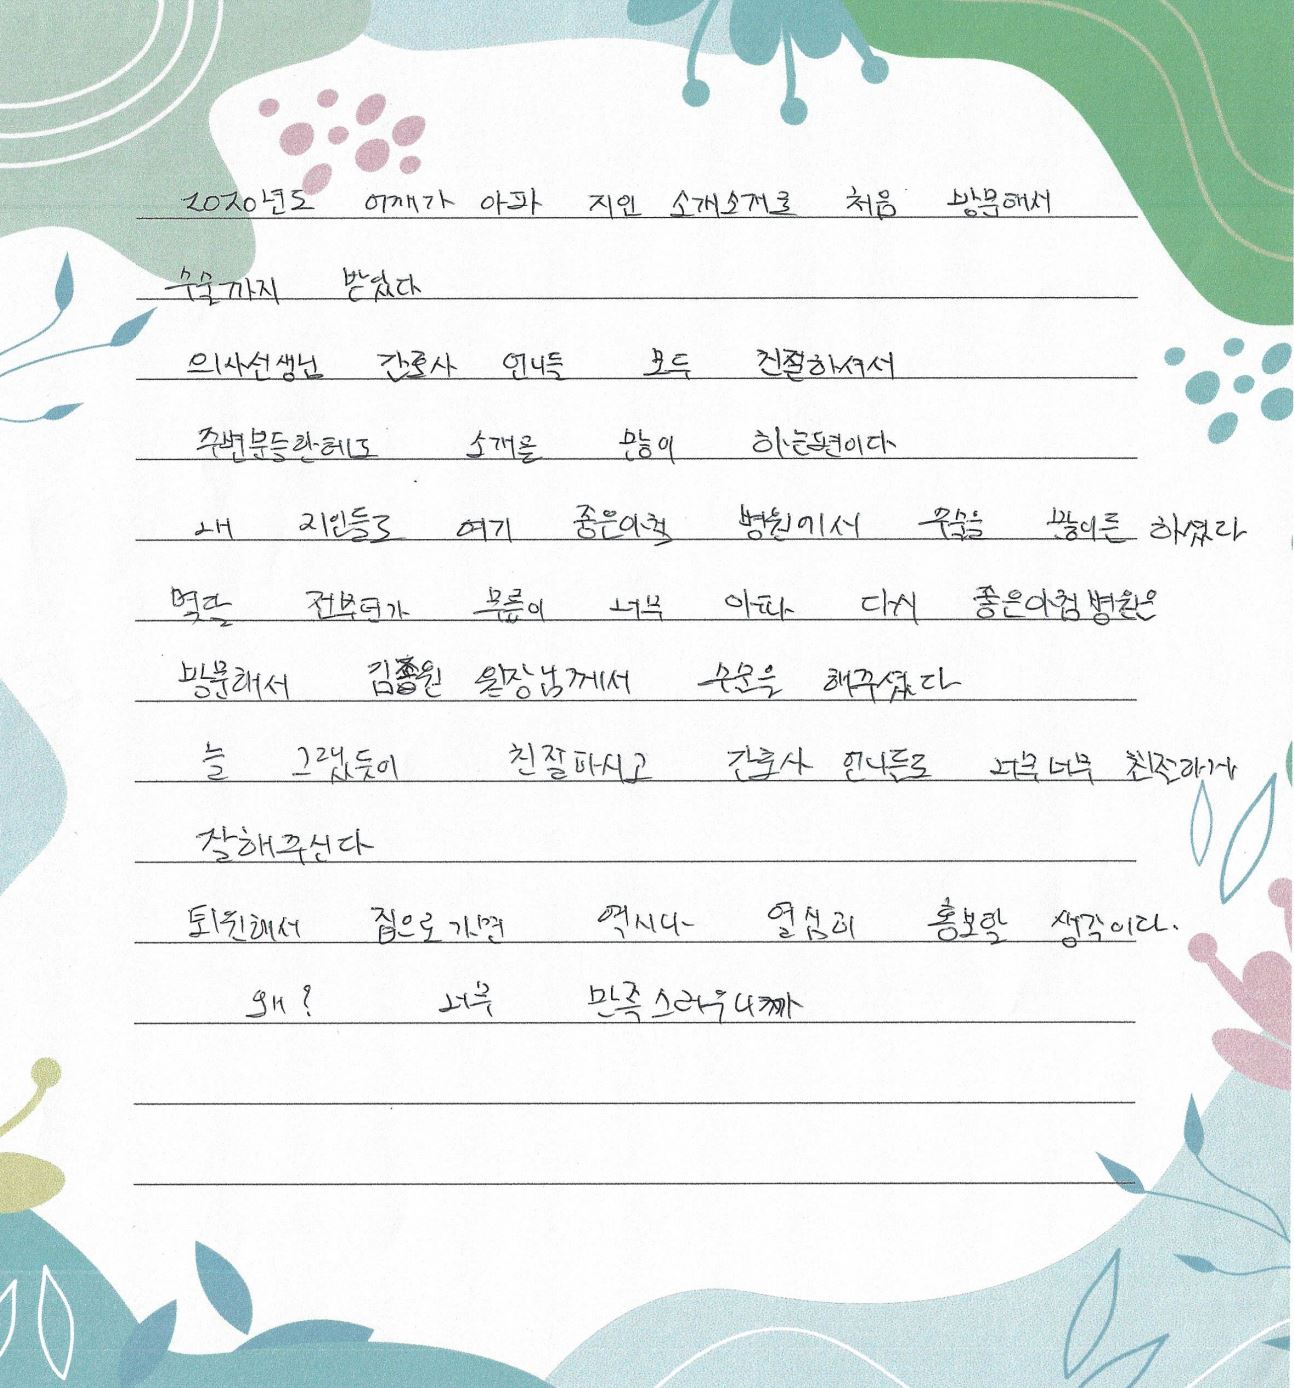 2020년도 어깨가 아파 지인 소개소개로 처음 방문해서
수술까지 받았다
의사선생님 간호사 언니들 모두 친절하셔서
주변분들한테도 소개를 많이 하는편이다
내 지인들도 여기 좋은아침 병원에서 수술을 많이른 하셨다
몇달 전부터가 무릎이 너무 아파 다시 좋은아침병원은
방문해서 김종원 원장님께서 수술을 해주셨다
늘 그랬듯이 친절하시고 간호사 언니들도 너무너무 친절하게
잘해주신다
퇴원해서 집으로 가면 역시나 열심히 홍보할 생각이다.
왜? 너무 만족스러우니까